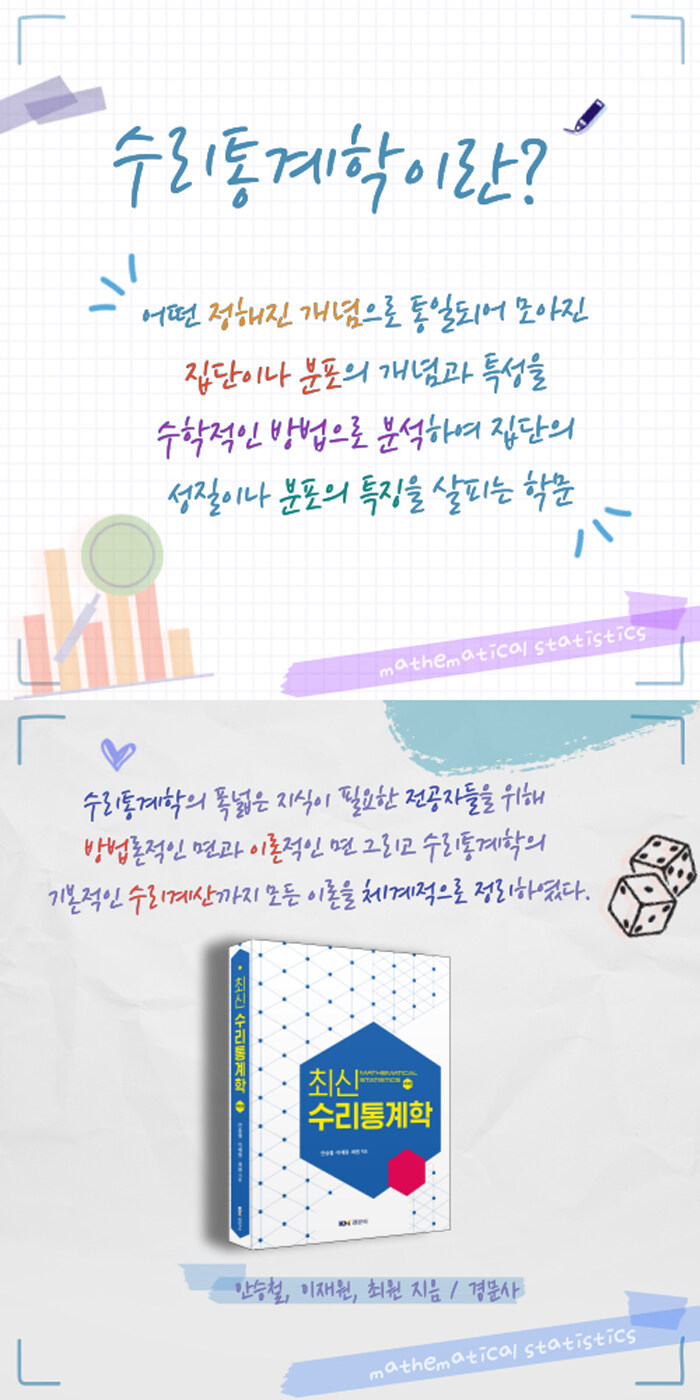 수리통계학이란?
어떤 정해진 개념으로 통일되어 모아진
집단이나 분포의 개념과 특성을
수학적인 방법으로 분석하여 집단의
성질이나 분포의 특징을 살피는 학문
mathematical statistics
수리통계학의 폭넓은 지식이 필요한 전공자들을 위해
방법론적인 면과 이론적인 면 그리고 수리통계학의
기본적인 수리계산까지 모든 이론을 체계적으로 정리하였다.
최신 수리통계학
최신 MATHEMATICAL
STATISTICS
수리통계학
안승철 이재원 최원 지음
경문사
안승철, 이재원, 최원 지음 / 경문사
mathematical statistics